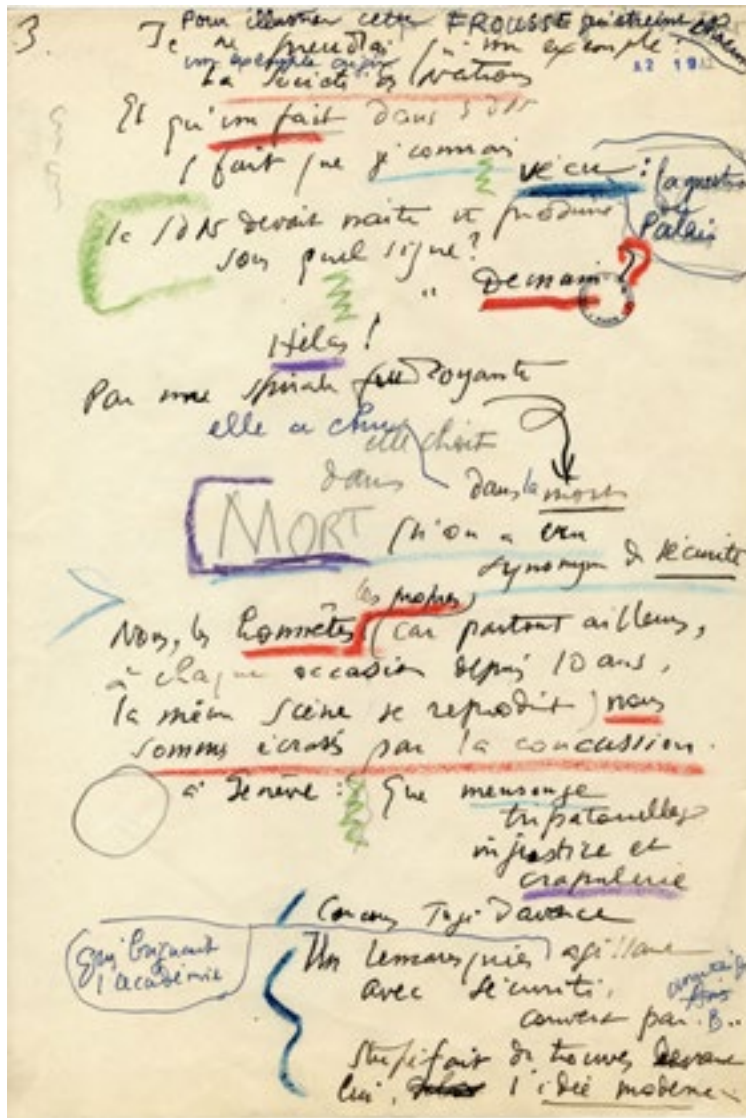 3.
Pour illustrer cette FROUSSE qui étreint
Je ne prendrai qu'un exemple :
un exemple
La Société des Nations
A2 19
Et qu'un fait dans SDN
1 fait que je connais
vécu : la question du Palais
la SDN devait naître et produire
sous quel signe ?
" Demain ?
Hélas !
Par une spirale foudroyante
elle a chu
elle choit
dans
dans la mort
MORT
qu'on a cru
synonyme de sécurité
les propres
Nous, les honnêtes (car partout ailleurs,
à chaque occasion depuis 10 ans,
la même scène se reproduit) nous
sommes écrasés par la concussion.
à Genève : Que mensonge
tripatouillage
injustice et
crapulerie
Concours Jugé d'avance
qui briguait
l'académie
Un Lemaresquier agissant
avec sécurité,
couvert par B..
stupéfait de trouver devant
lui, l'idée moderne